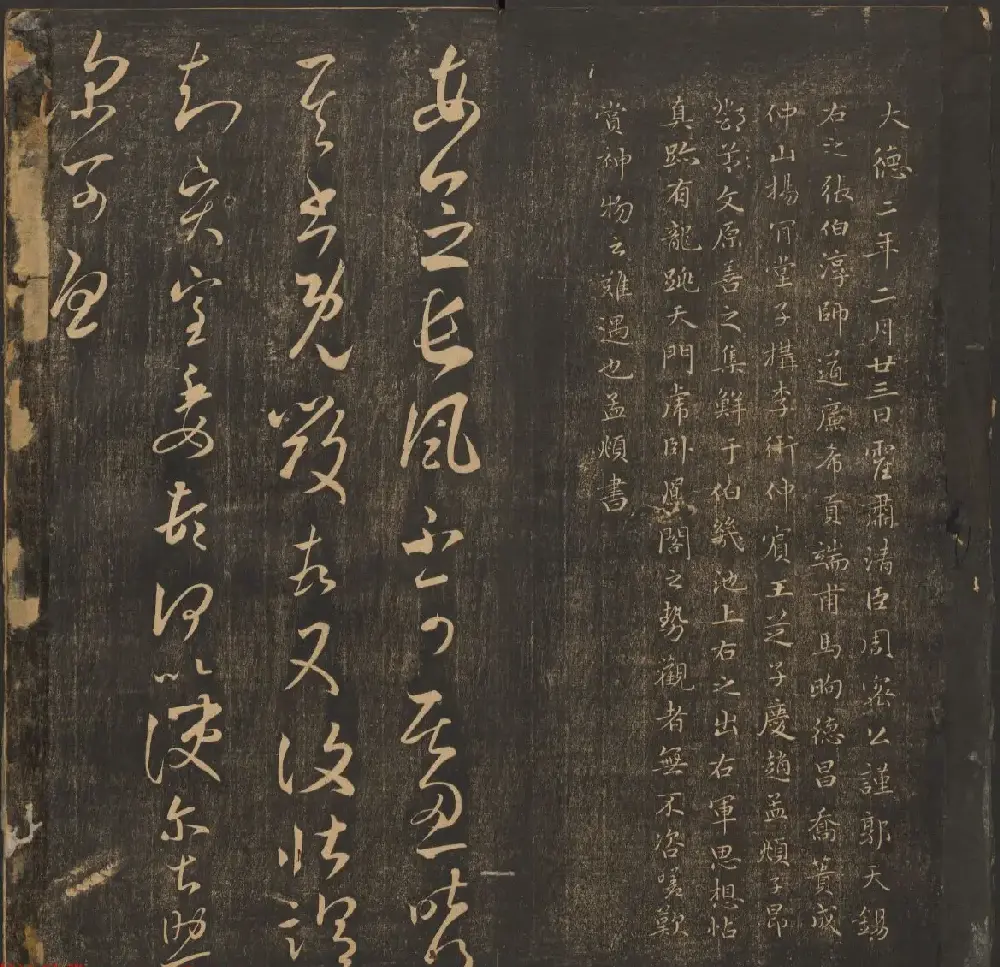 大德二年二月廿三日霍肅清臣周密公謹郭天錫
右之張伯淳師道廉希貢端甫馬昫德昌喬簣成
仲山楊肎堂子構李衎仲賓王芝子慶趙孟頫子昂
鄧文原善之集鮮于伯幾池上右之出右軍思想帖
真跡有龍跳天門虎臥鳳閣之勢觀者無不咨嗟歎
賞神物之難遇也孟頫書
每念長風不可居忍昨得
其書既毀又復壯謂
知賢室委頓何以使爾甚助